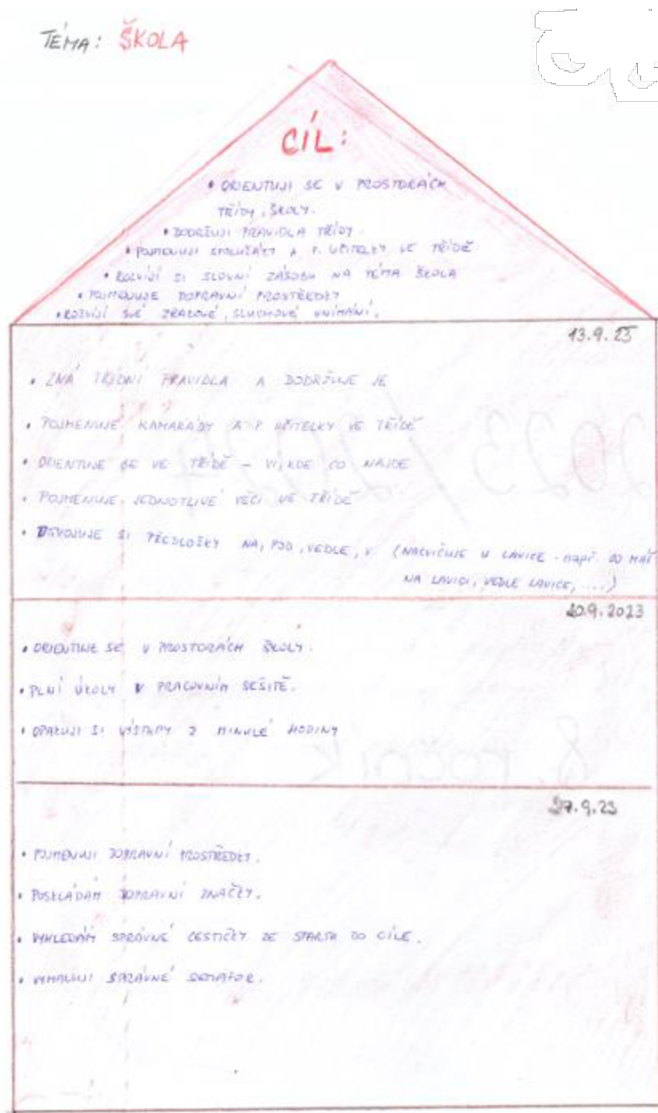 TÉMA: ŠKOLA
CÍL:
• ORIENTUJI SE V PROSTORÁCH
TŘÍDY, ŠKOLY.
• DODRŽUJI PRAVIDLA TŘÍDY.
• POJMENUJI SPOLUŽÁKY A P. UČITELKY VE TŘÍDĚ
• ROZVÍJÍ SI SLOVNÍ ZÁSOBU NA TÉMA ŠKOLA
• POJMENUJE DOPRAVNÍ PROSTŘEDKY
• ROZVÍJÍ SVÉ ZRAKOVÉ, SLUCHOVÉ VNÍMÁNÍ.
13.9.23
• ZNÁ TŘÍDNÍ PRAVIDLA A DODRŽUJE JE
• POJMENUJE KAMARÁDY A P. UČITELKY VE TŘÍDĚ
• ORIENTUJE SE VE TŘÍDĚ - VÍ, KDE CO NAJDE
• POJMENUJE JEDNOTLIVÉ VĚCI VE TŘÍDĚ
• OSVOJUJE SI PŘEDLOŽKY NA, POD, VEDLE, V (NACVIČUJE U LAVICE - např. CO MÁŠ
NA LAVICI, VEDLE LAVICE, ....)
20.9.2023
• ORIENTUJE SE V PROSTORÁCH ŠKOLY.
• PLNÍ ÚKOLY V PRACOVNÍM SEŠITĚ.
• OPAKUJI SI VÝSTUPY Z MINULÉ HODINY
27.9.23
• POJMENUJI DOPRAVNÍ PROSTŘEDKY.
• POSKLÁDÁM DOPRAVNÍ ZNAČKY.
• VYHLEDÁM SPRÁVNÉ CESTIČKY ZE STARTU DO CÍLE.
• VYMALUJI SPRÁVNĚ SEMAFOR.
2023/2024
8. ROČNÍK